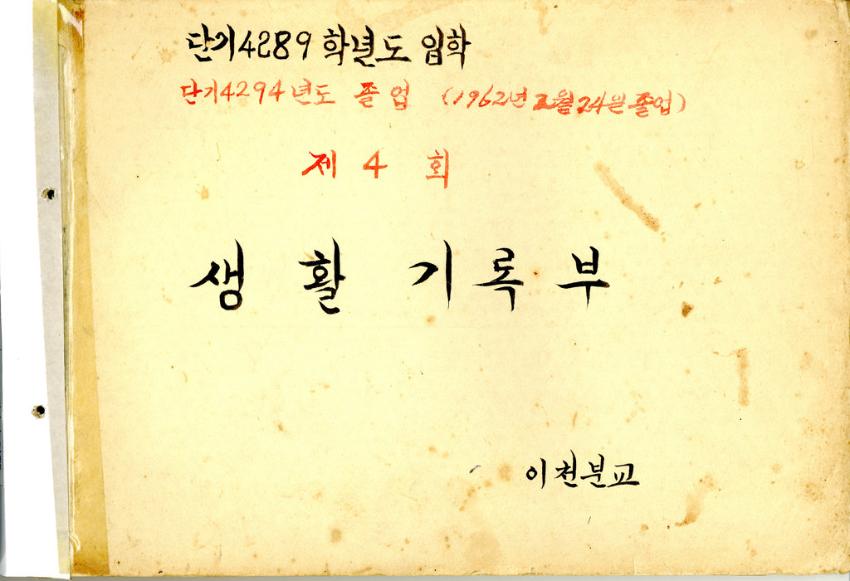 단기4289 학년도 입학
단기4294년도 졸업 (1962년 2월 24일 졸업)
제 4 회
생 활 기 록 부
이천분교